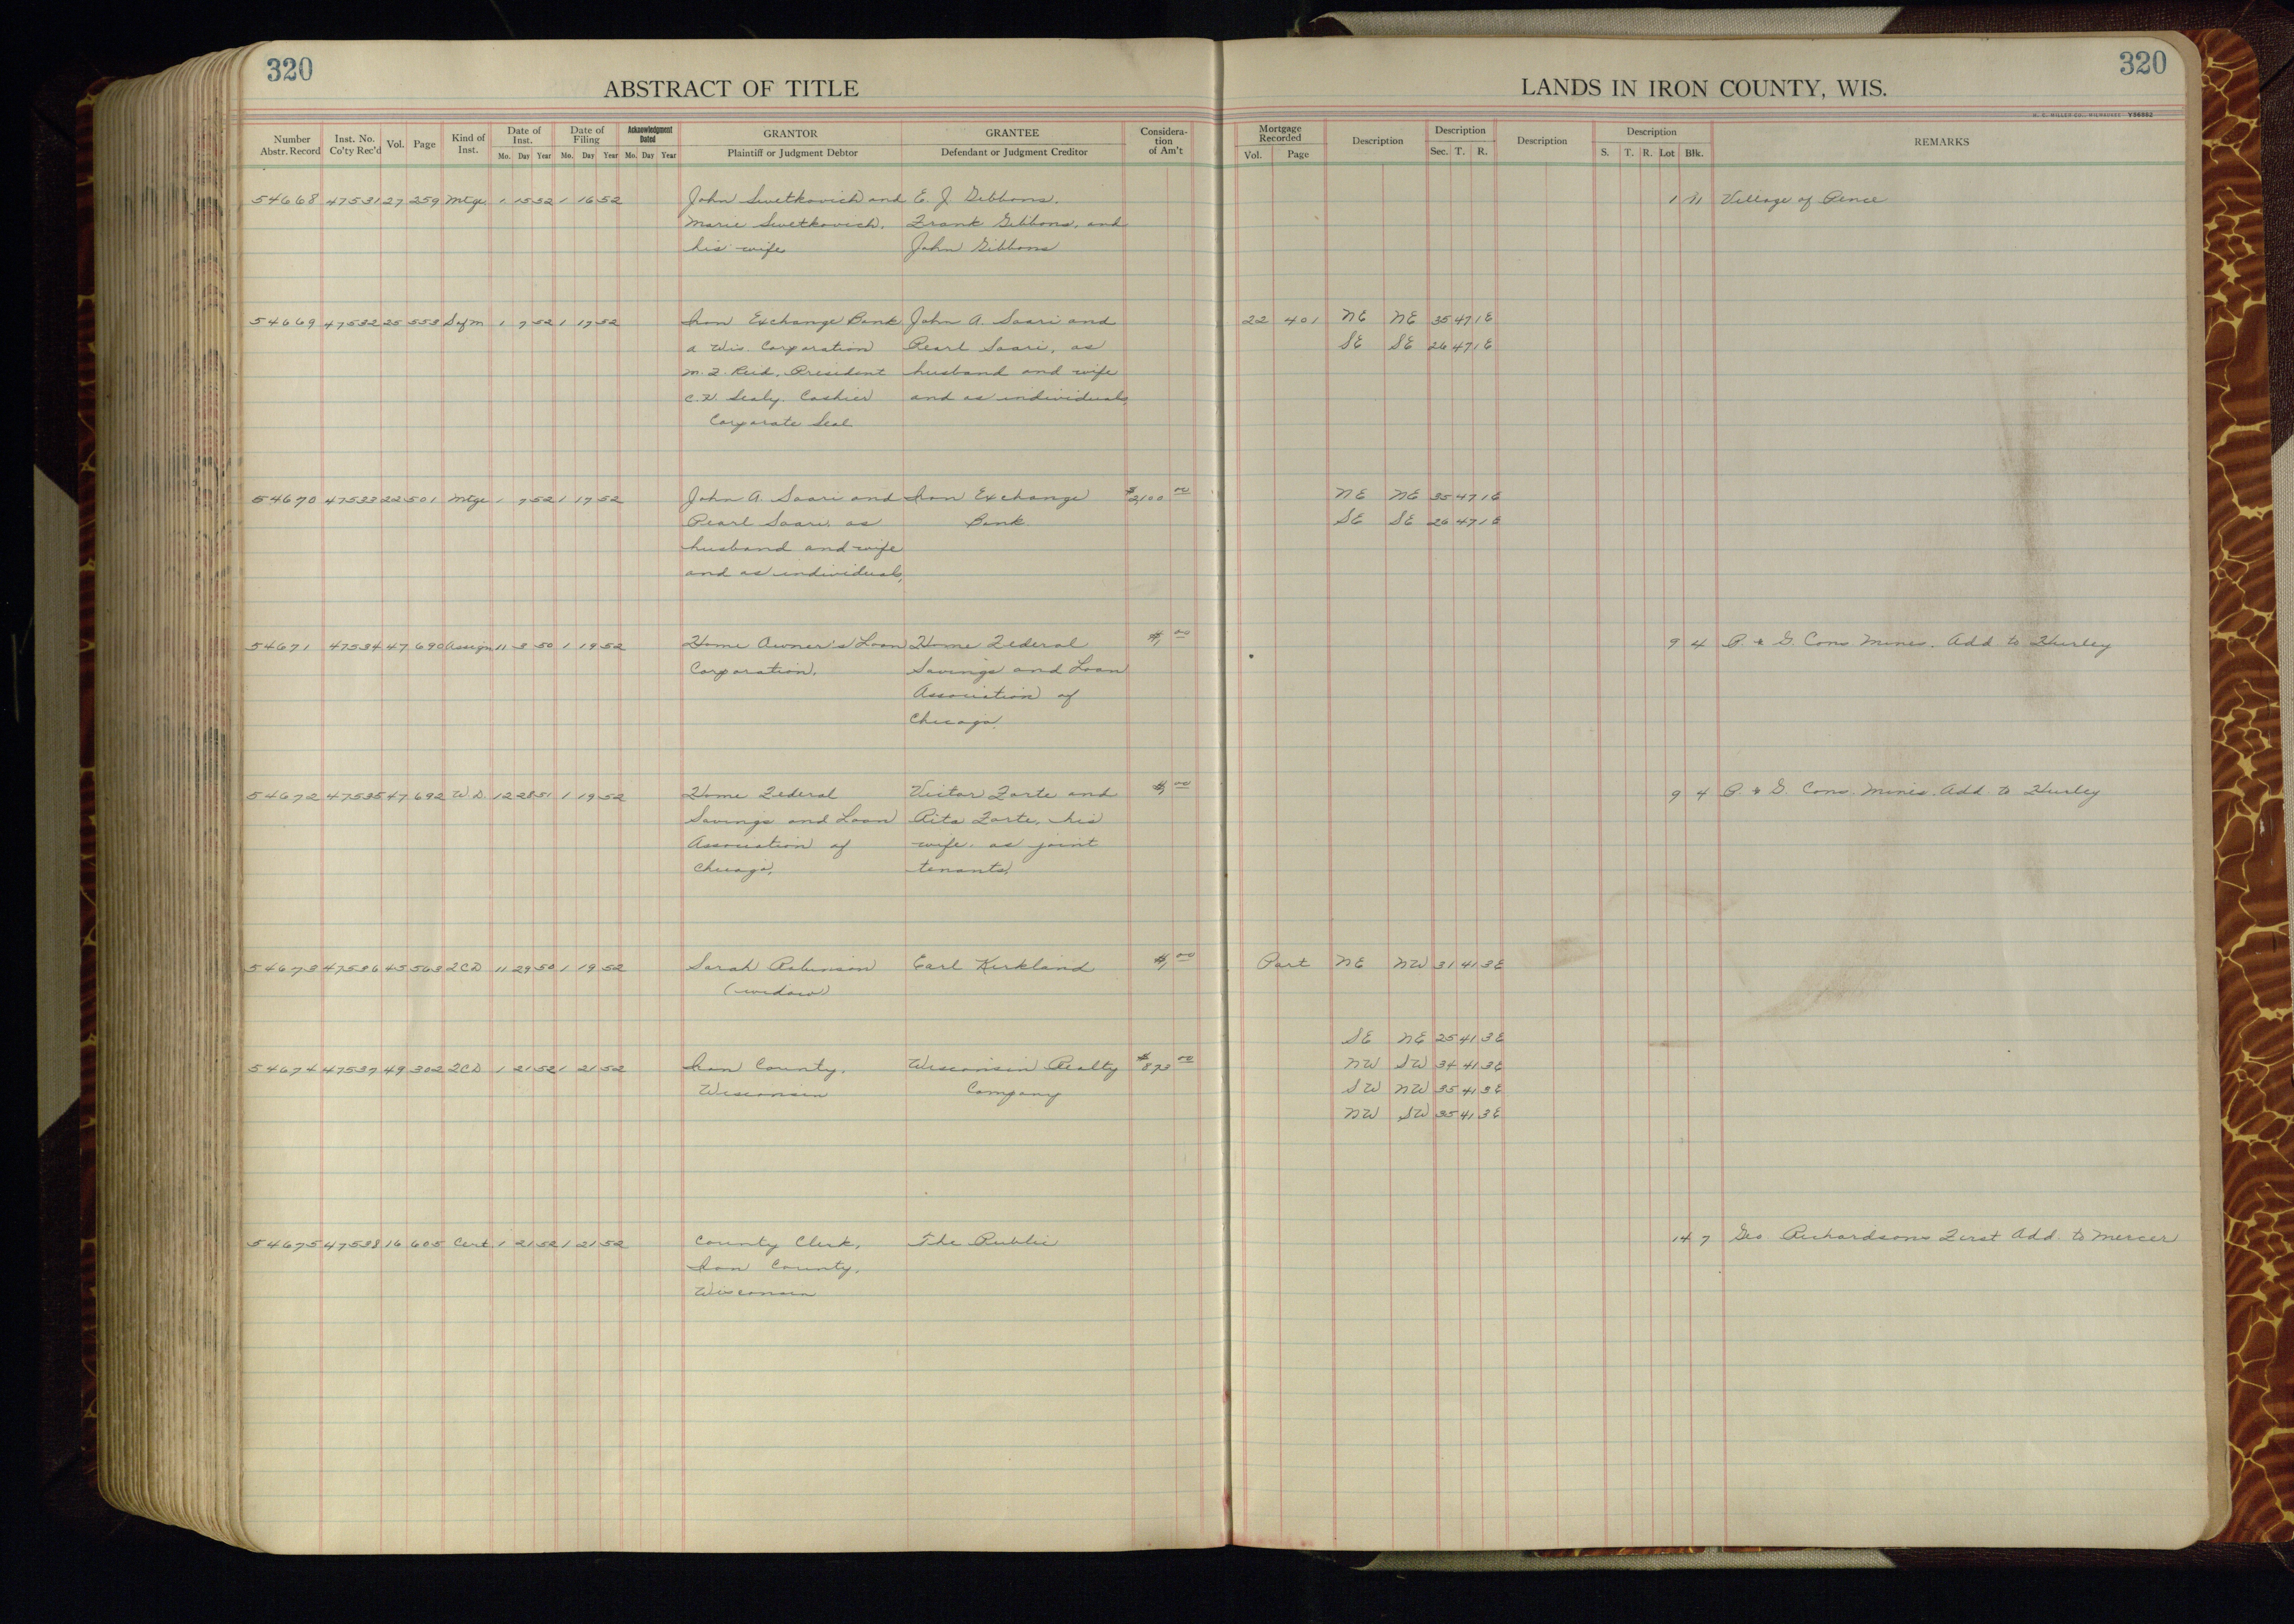 320
ABSTRACT OF TITLE
Number Abstr. Record | Inst. No. Co'ty Rec'd | Vol. | Page | Kind of Inst. | Date of Inst. Mo. Day Year | Date of Filing Mo. Day Year | Acknowledgment Dated Mo. Day Year | GRANTOR Plaintiff or Judgment Debtor | GRANTEE Defendant or Judgment Creditor | Consideration of Am't
54668 47531 27 259 Mtge 1 15 52 1 16 52 John Swetkovich and E. J. Gibbons,
Marie Swetkovich, Frank Gibbons, and
his wife John Gibbons
54669 47532 25 553 Sofm 1 7 52 1 17 52 Iron Exchange Bank John A. Saari and
a Wis. Corporation Pearl Saari, as
M. F. Reid, President husband and wife
Sealy, Cashier and as individuals,
Corporate Seal
54670 47533 22 501 Mtge 1 7 52 1 17 52 John A. Saari and Iron Exchange $2,100 00
Pearl Saari, as Bank
husband and wife
and as individuals,
54671 47534 47 690 Assign 11 3 50 1 19 52 Home Owner's Loan Home Federal $1, 00
Corporation, Savings and Loan
Association of
Chicago,
54672 47535 47 692 W.D. 12 28 51 1 19 52 Home Federal Victor Forte and $1, 00
Savings and Loan Rita Forte, his
Association of wife, as joint
Chicago, tenants,
54673 47536 45 563 2CD 11 29 50 1 19 52 Sarah Robinson Earl Kirkland $1, 00
(widow)
54674 47537 49 302 2CD 1 21 52 1 21 52 Iron County, Wisconsin Realty $873 00
Wisconsin Company
54675 47538 16 605 Cert. 1 21 52 1 21 52 County Clerk, The Public
Iron County,
Wisconsin
320
LANDS IN IRON COUNTY, WIS.
H. C. MILLER CO., MILWAUKEE
Mortgage Recorded Vol. Page | Description | Description Sec. T. R. | Description | Description S. T. R. Lot Blk. | REMARKS
1 11 Village of Pence
22 401 NE NE 35 47 1E
SE SE 26 47 1E
NE NE 35 47 1E
SE SE 26 47 1E
9 4 P. & G. Cons. Mines. Add to Hurley
9 4 P. & G. Cons. Mines. Add. to Hurley
Part NE NW 31 41 3E
SE NE 25 41 3E
NW SW 34 41 3E
SW NW 35 41 3E
NW SW 35 41 3E
14 7 Geo Richardsons First Add. to Mercer